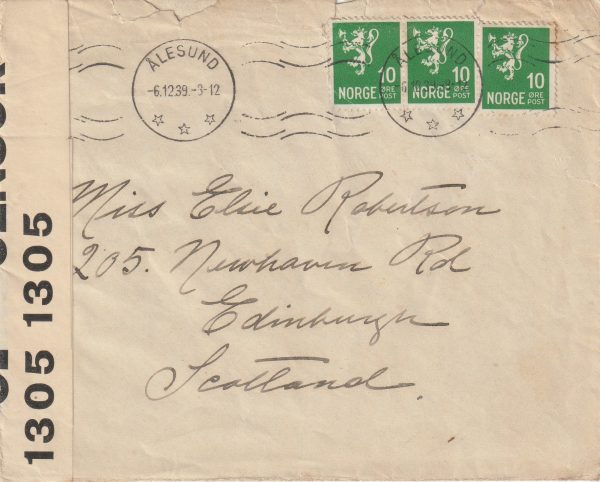 ÅLESUND
-6.12.39.-3-12
10 10 10
NORGE ØRE POST NORGE ØRE POST NORGE ØRE POST
ÅLESUND
Miss Elsie Robertson
205. Newhaven Rd
Edinburgh
Scotland.
1305 1305